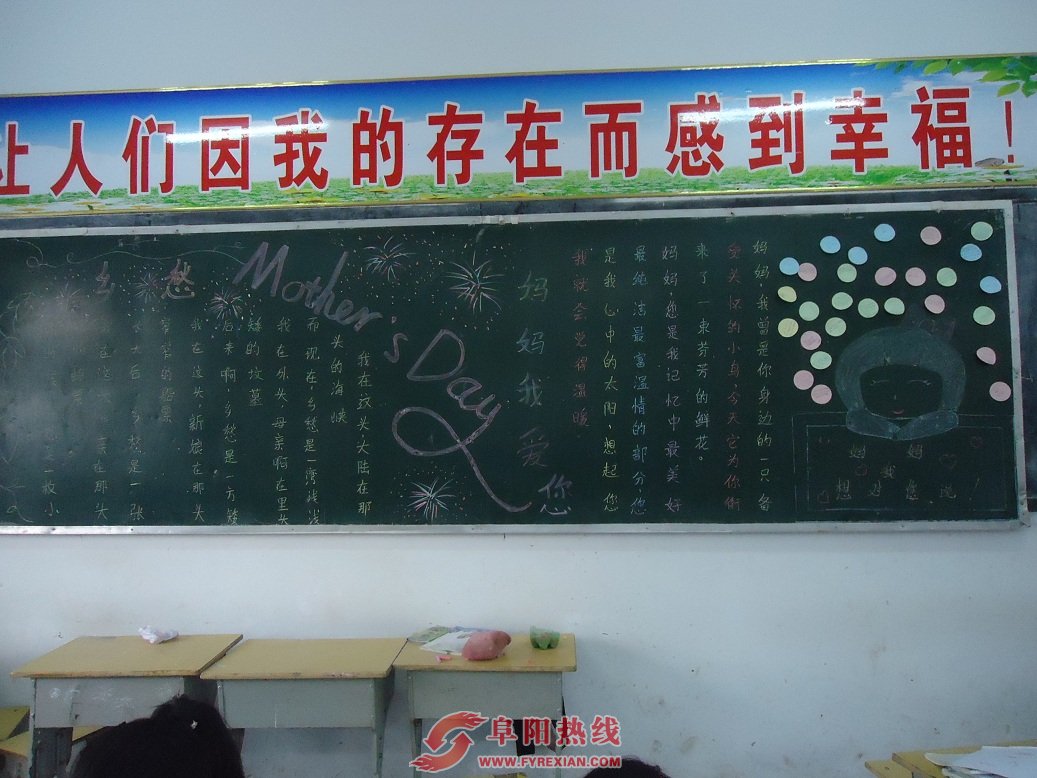 让人们因我的存在而感到幸福！
乡愁
一枚小
在那头
大后，乡愁是一张
窄窄的船票
我在这头，新娘在那头
后来啊，乡愁是一方矮
矮的坟墓
我在外头，母亲啊在里头
而现在，乡愁是一湾浅浅
头的海峡
我在这头大陆在那
Mother's Day
妈妈我爱您
妈妈，我曾是你身边的一只备
受关怀的小鸟，今天它为你衔
来了一束芬芳的鲜花。
妈妈，您是我记忆中最美好
最纯洁最富温情的部分您
是我心中的太阳，想起您
我就会觉得温暖
妈妈
我
想对您说！
阜阳热线
WWW.FYREXIAN.COM